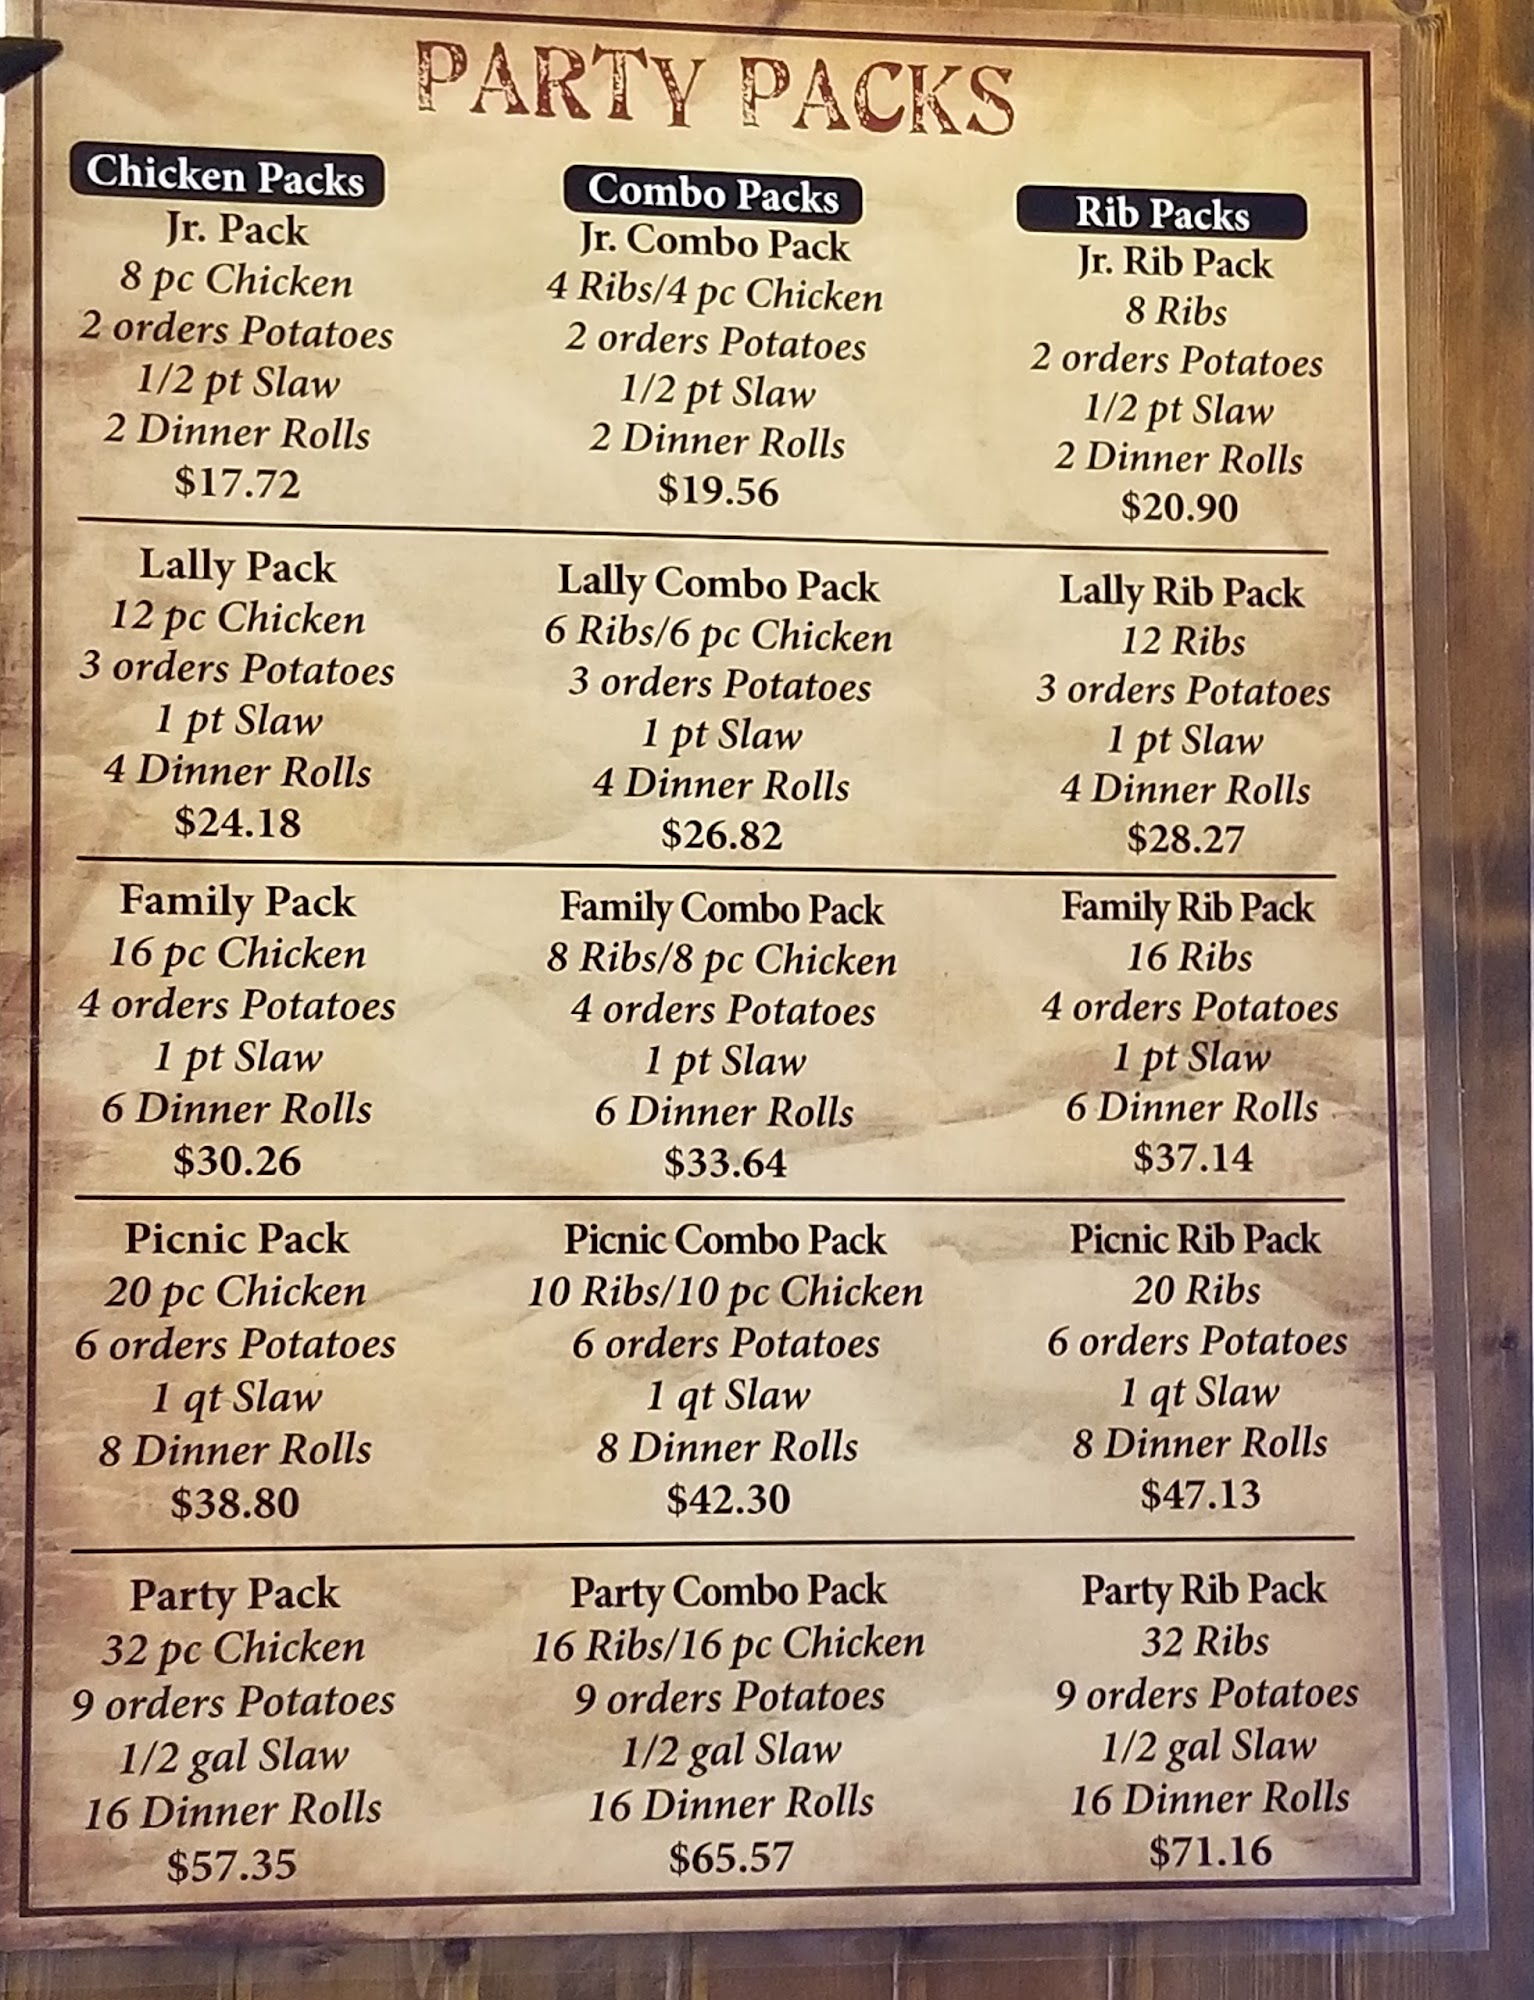 PARTY PACKS
Chicken Packs
Jr. Pack
8 pc Chicken
2 orders Potatoes
1/2 pt Slaw
2 Dinner Rolls
$17.72
Lally Pack
12 pc Chicken
3 orders Potatoes
1 pt Slaw
4 Dinner Rolls
$24.18
Family Pack
16 pc Chicken
4 orders Potatoes
1 pt Slaw
6 Dinner Rolls
$30.26
Picnic Pack
20 pc Chicken
6 orders Potatoes
1 qt Slaw
8 Dinner Rolls
$38.80
Party Pack
32 pc Chicken
9 orders Potatoes
1/2 gal Slaw
16 Dinner Rolls
$57.35
Combo Packs
Jr. Combo Pack
4 Ribs/4 pc Chicken
2 orders Potatoes
1/2 pt Slaw
2 Dinner Rolls
$19.56
Lally Combo Pack
6 Ribs/6 pc Chicken
3 orders Potatoes
1 pt Slaw
4 Dinner Rolls
$26.82
Family Combo Pack
8 Ribs/8 pc Chicken
4 orders Potatoes
1 pt Slaw
6 Dinner Rolls
$33.64
Picnic Combo Pack
10 Ribs/10 pc Chicken
6 orders Potatoes
1 qt Slaw
8 Dinner Rolls
$42.30
Party Combo Pack
16 Ribs/16 pc Chicken
9 orders Potatoes
1/2 gal Slaw
16 Dinner Rolls
$65.57
Rib Packs
Jr. Rib Pack
8 Ribs
2 orders Potatoes
1/2 pt Slaw
2 Dinner Rolls
$20.90
Lally Rib Pack
12 Ribs
3 orders Potatoes
1 pt Slaw
4 Dinner Rolls
$28.27
Family Rib Pack
16 Ribs
4 orders Potatoes
1 pt Slaw
6 Dinner Rolls
$37.14
Picnic Rib Pack
20 Ribs
6 orders Potatoes
1 qt Slaw
8 Dinner Rolls
$47.13
Party Rib Pack
32 Ribs
9 orders Potatoes
1/2 gal Slaw
16 Dinner Rolls
$71.16